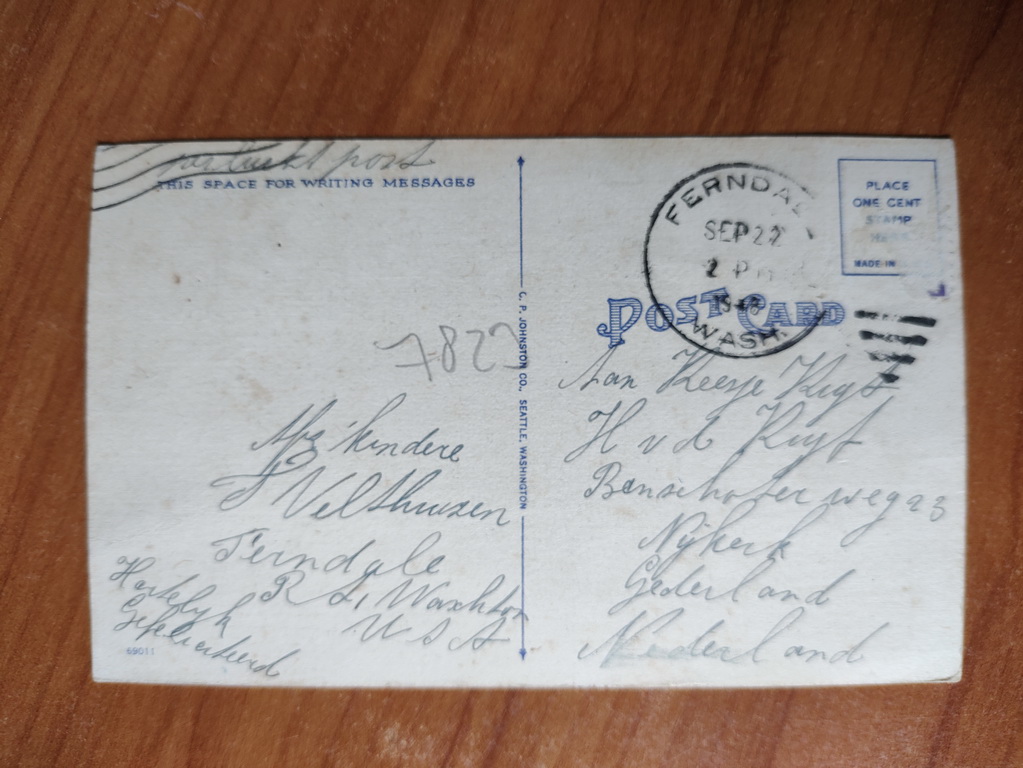 post
THIS SPACE FOR WRITING MESSAGES
7822
Afz kindere
J Velthuizen
Ferndale
R 1, Waschton
U S A
Hartelyk
Gefeliciteerd
69011
C. P. JOHNSTON CO., SEATTLE, WASHINGTON
FERNDALE
SEP 22
2 P M
1948
WASH.
PLACE
ONE CENT
STAMP
HERE
MADE IN
POST CARD
Aan Keesje
H v d
weg 23
Nijkerk
Gederland
Nederland